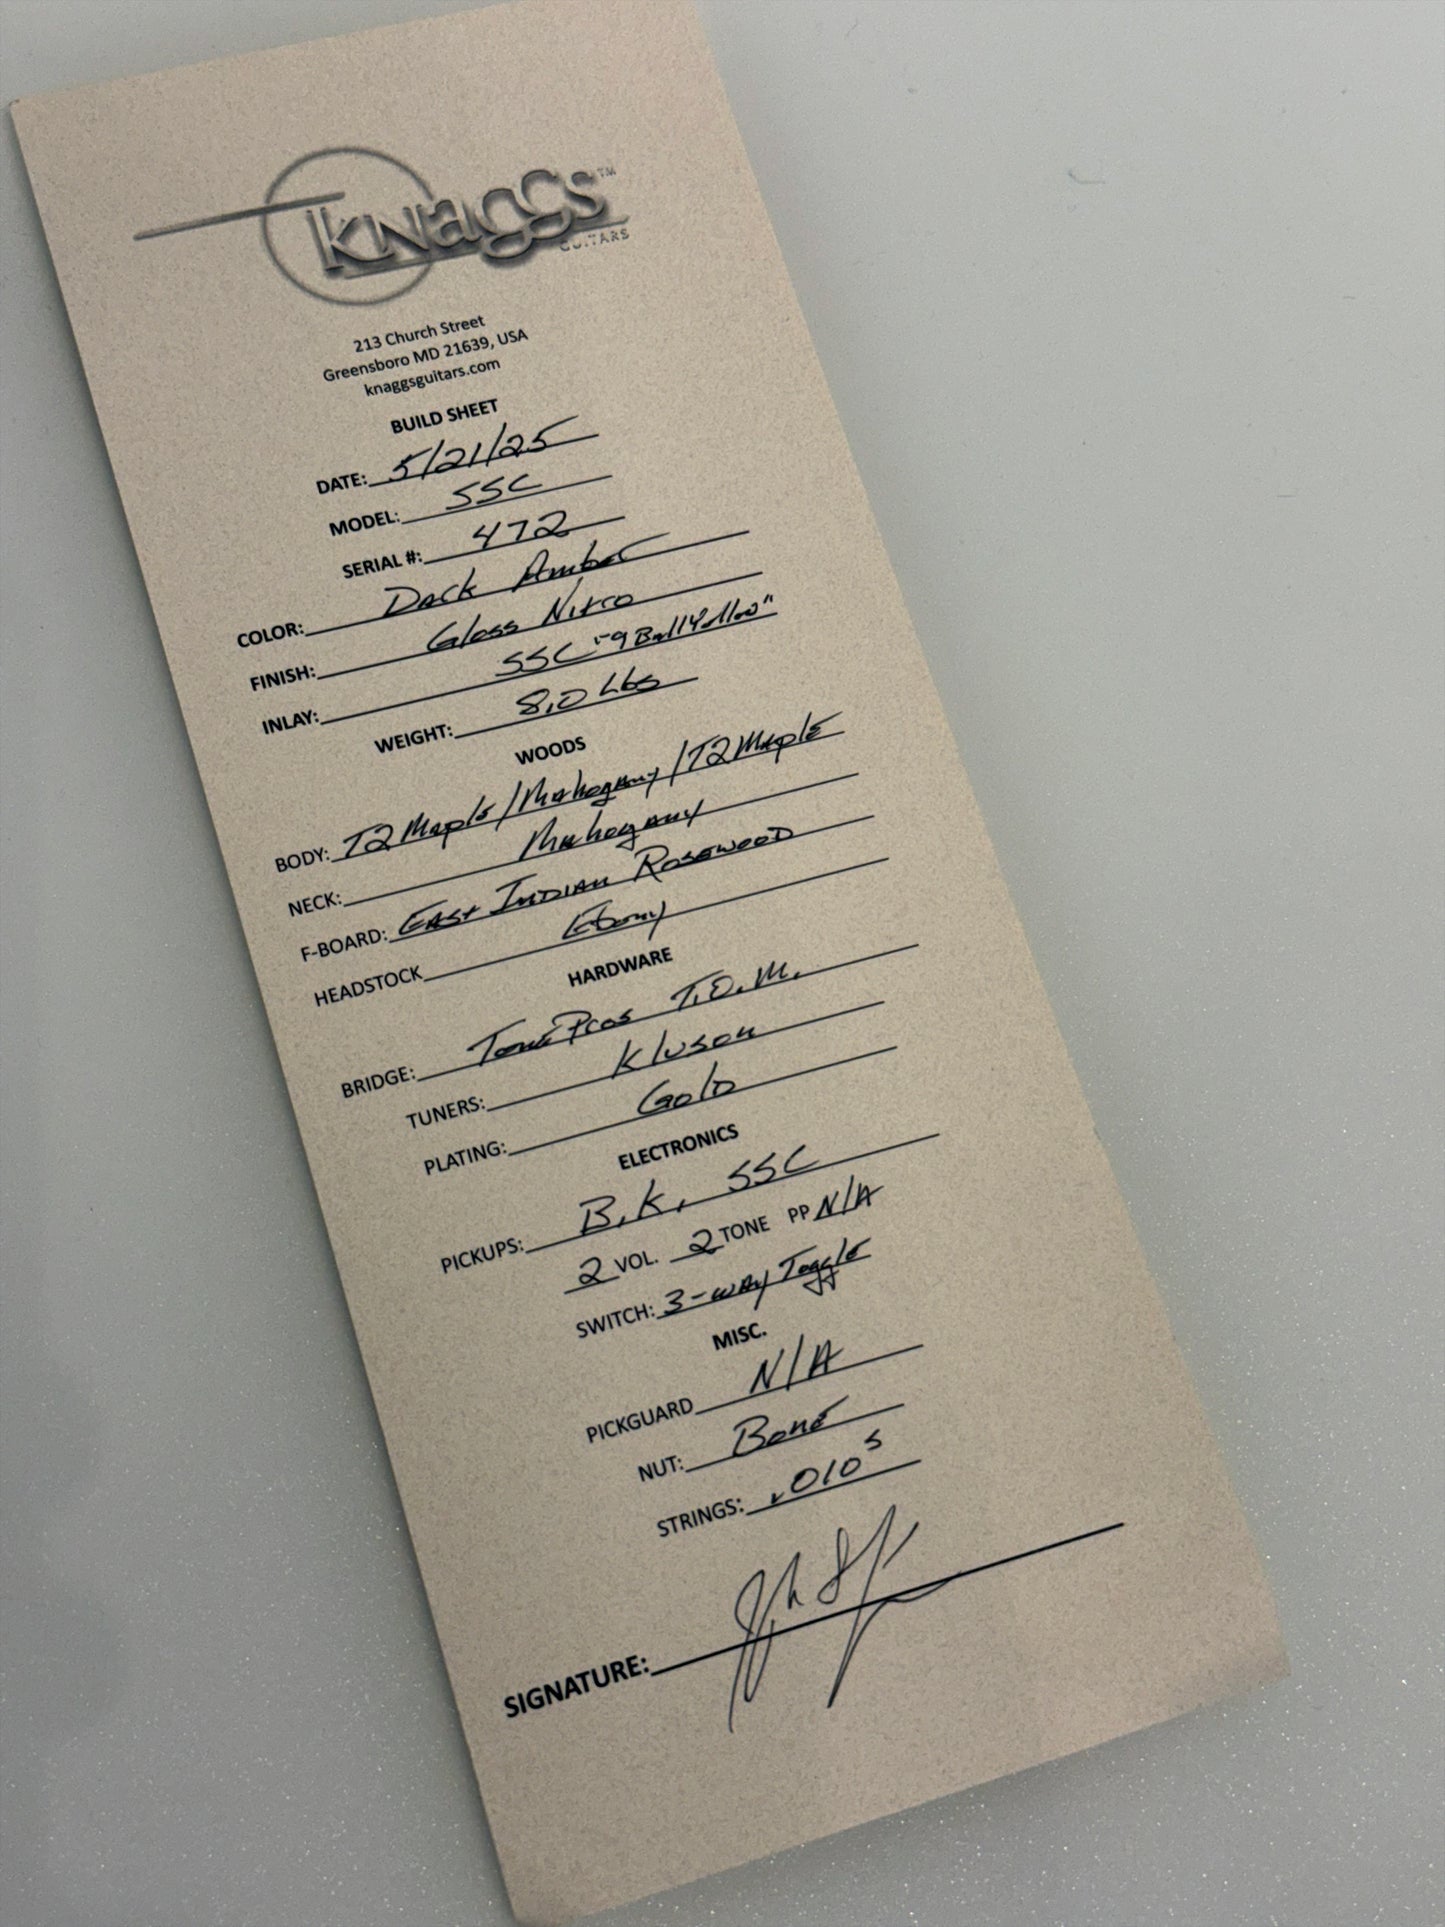 knaggs™
GUITARS
213 Church Street
Greensboro MD 21639, USA
knaggsguitars.com
BUILD SHEET
DATE: 5/21/25
MODEL: SSC
SERIAL #: 472
COLOR: Dark Amber
FINISH: Gloss Nitro
INLAY: SSC "9 Ball Yellow"
WEIGHT: 8.0 Lbs
WOODS
BODY: T2 Maple/Mahogany/T2 Maple
NECK: Mahogany
F-BOARD: East Indian Rosewood
HEADSTOCK Ebony
HARDWARE
BRIDGE: TonePros T.O.M.
TUNERS: Kluson
PLATING: Gold
ELECTRONICS
PICKUPS: B.K. SSC
2 VOL. 2 TONE PP N/A
SWITCH: 3-way Toggle
MISC.
PICKGUARD N/A
NUT: Bone
STRINGS: .010s
SIGNATURE: